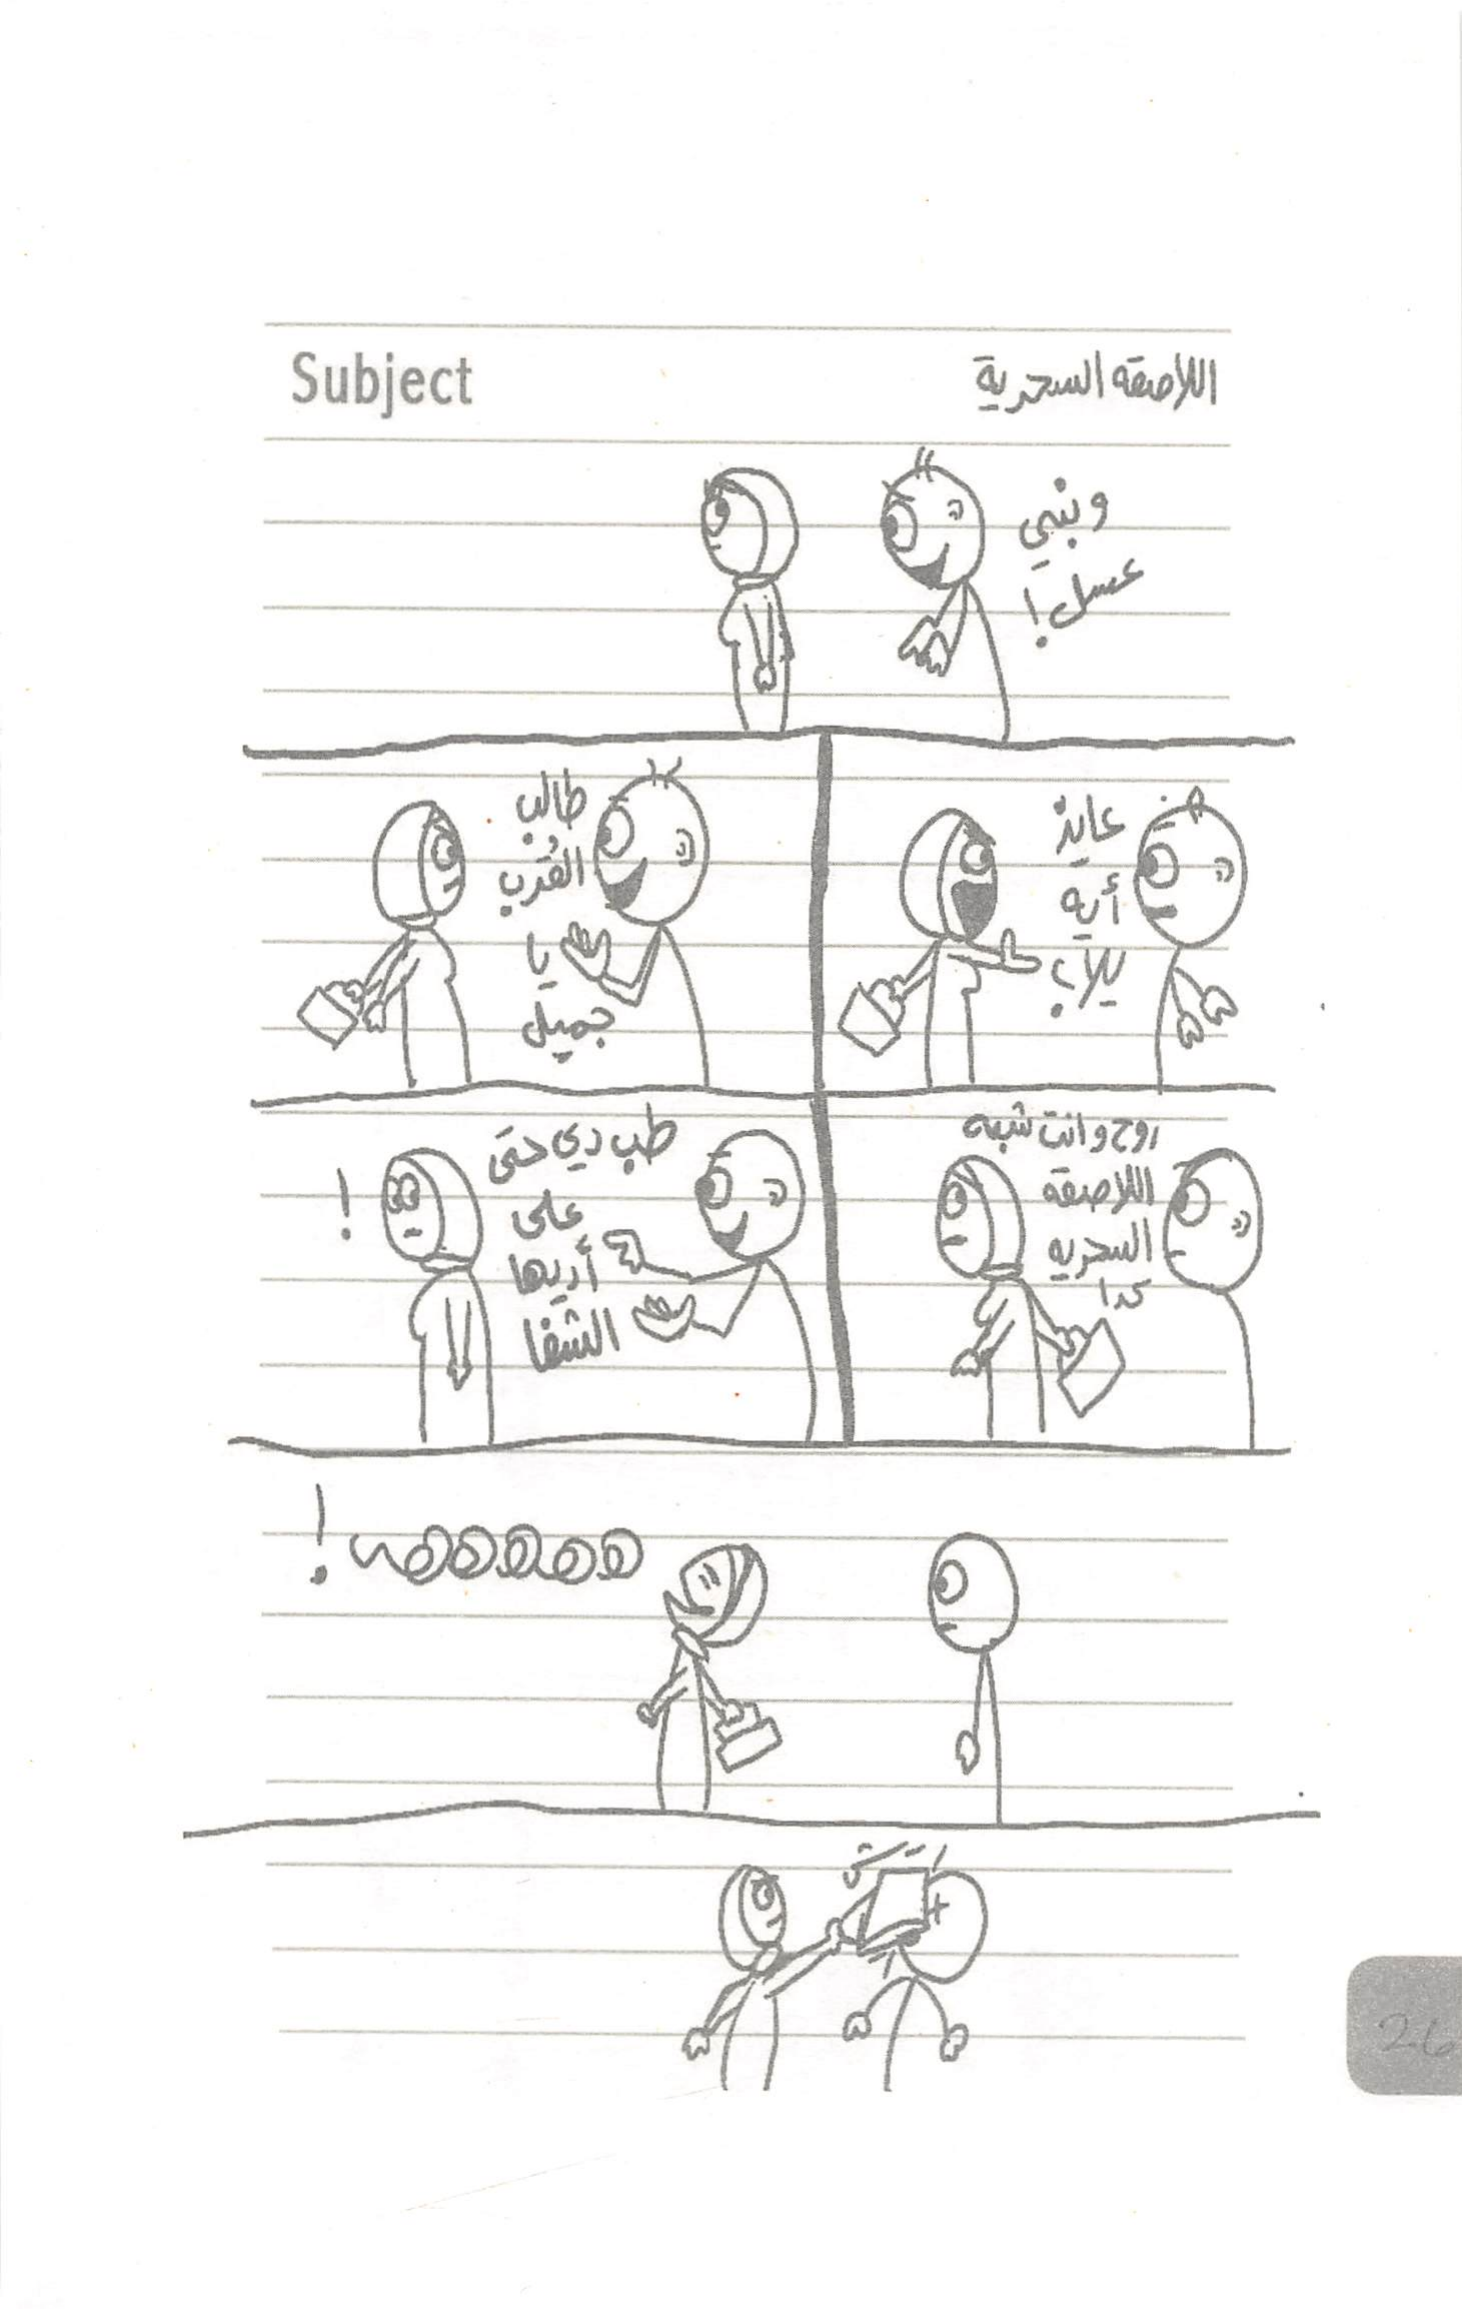 Subject
اللاصقه السحرية
وبنبي
عسل!
عايز
أيه
يلاب
طالب
القُرب
يا
جميل
روح وانت شبه
اللاصقه
السحريه
كدا
طب دي حتى
على
أديها
الشفا
!
!
26